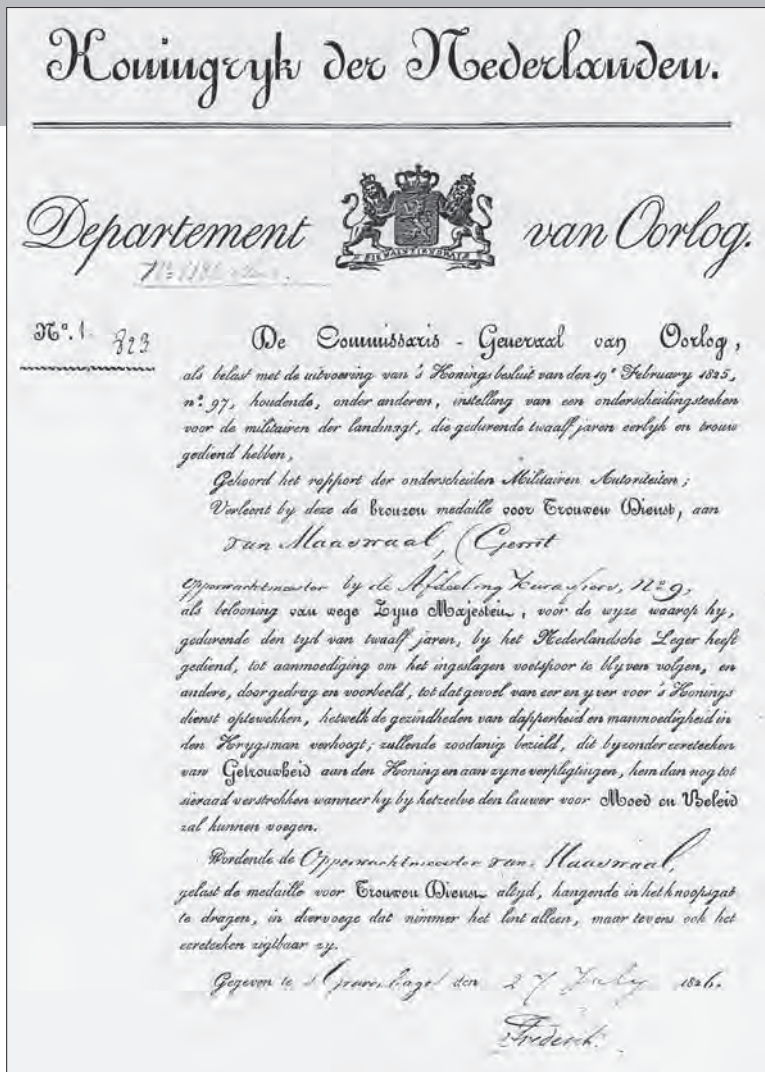 Koningryk der Nederlanden.
Departement van Oorlog.
JE MAINTIENDRAI
No. 1. 823
De Commissaris-Generaal van Oorlog,
als belast met de uitvoering van 's Konings besluit van den 19e February 1825,
no. 97, houdende, onder anderen, instelling van een onderscheidingsteeken
voor de militairen der landmagt, die gedurende twaalf jaren eerlyk en trouw
gediend hebben,
Gehoord het rapport der onderscheiden Militairen Autoriteiten;
Verleent by deze de bronzen medaille voor Trouwen Dienst, aan
van Maaswaal, (Gerrit
Opperwachtmeester by de Afdeeling Kurassiers, No 9,
als belooning van wege Zyne Majesteit, voor de wyze waarop hy,
gedurende den tyd van twaalf jaren, by het Nederlandsche Leger heeft
gediend, tot aanmoediging om het ingeslagen voetspoor te blyven volgen, en
andere, door gedrag en voorbeeld, tot dat gevoel van eer en yver voor 's Konings
dienst optewekken, hetwelk de gezindheden van dapperheid en manmoedigheid in
den Krygsman verhoogt; zullende zoodanig bezield, dit byzonder eereteeken
van Getrouwheid aan den Koning en aan zyne verpligtingen, hem dan nog tot
sieraad verstrekken wanneer hy by hetzelve den lauwer voor Moed en Beleid
zal kunnen voegen.
Wordende de Opperwachtmeester van Maaswaal,
gelast de medaille voor Trouwen Dienst altyd, hangende in het knoopsgat
te dragen, in diervoege dat nimmer het lint alleen, maar tevens ook het
eereteeken zigtbaar zy.
Gegeven te 's Gravenhage den 27 July 1826.
Frederik.